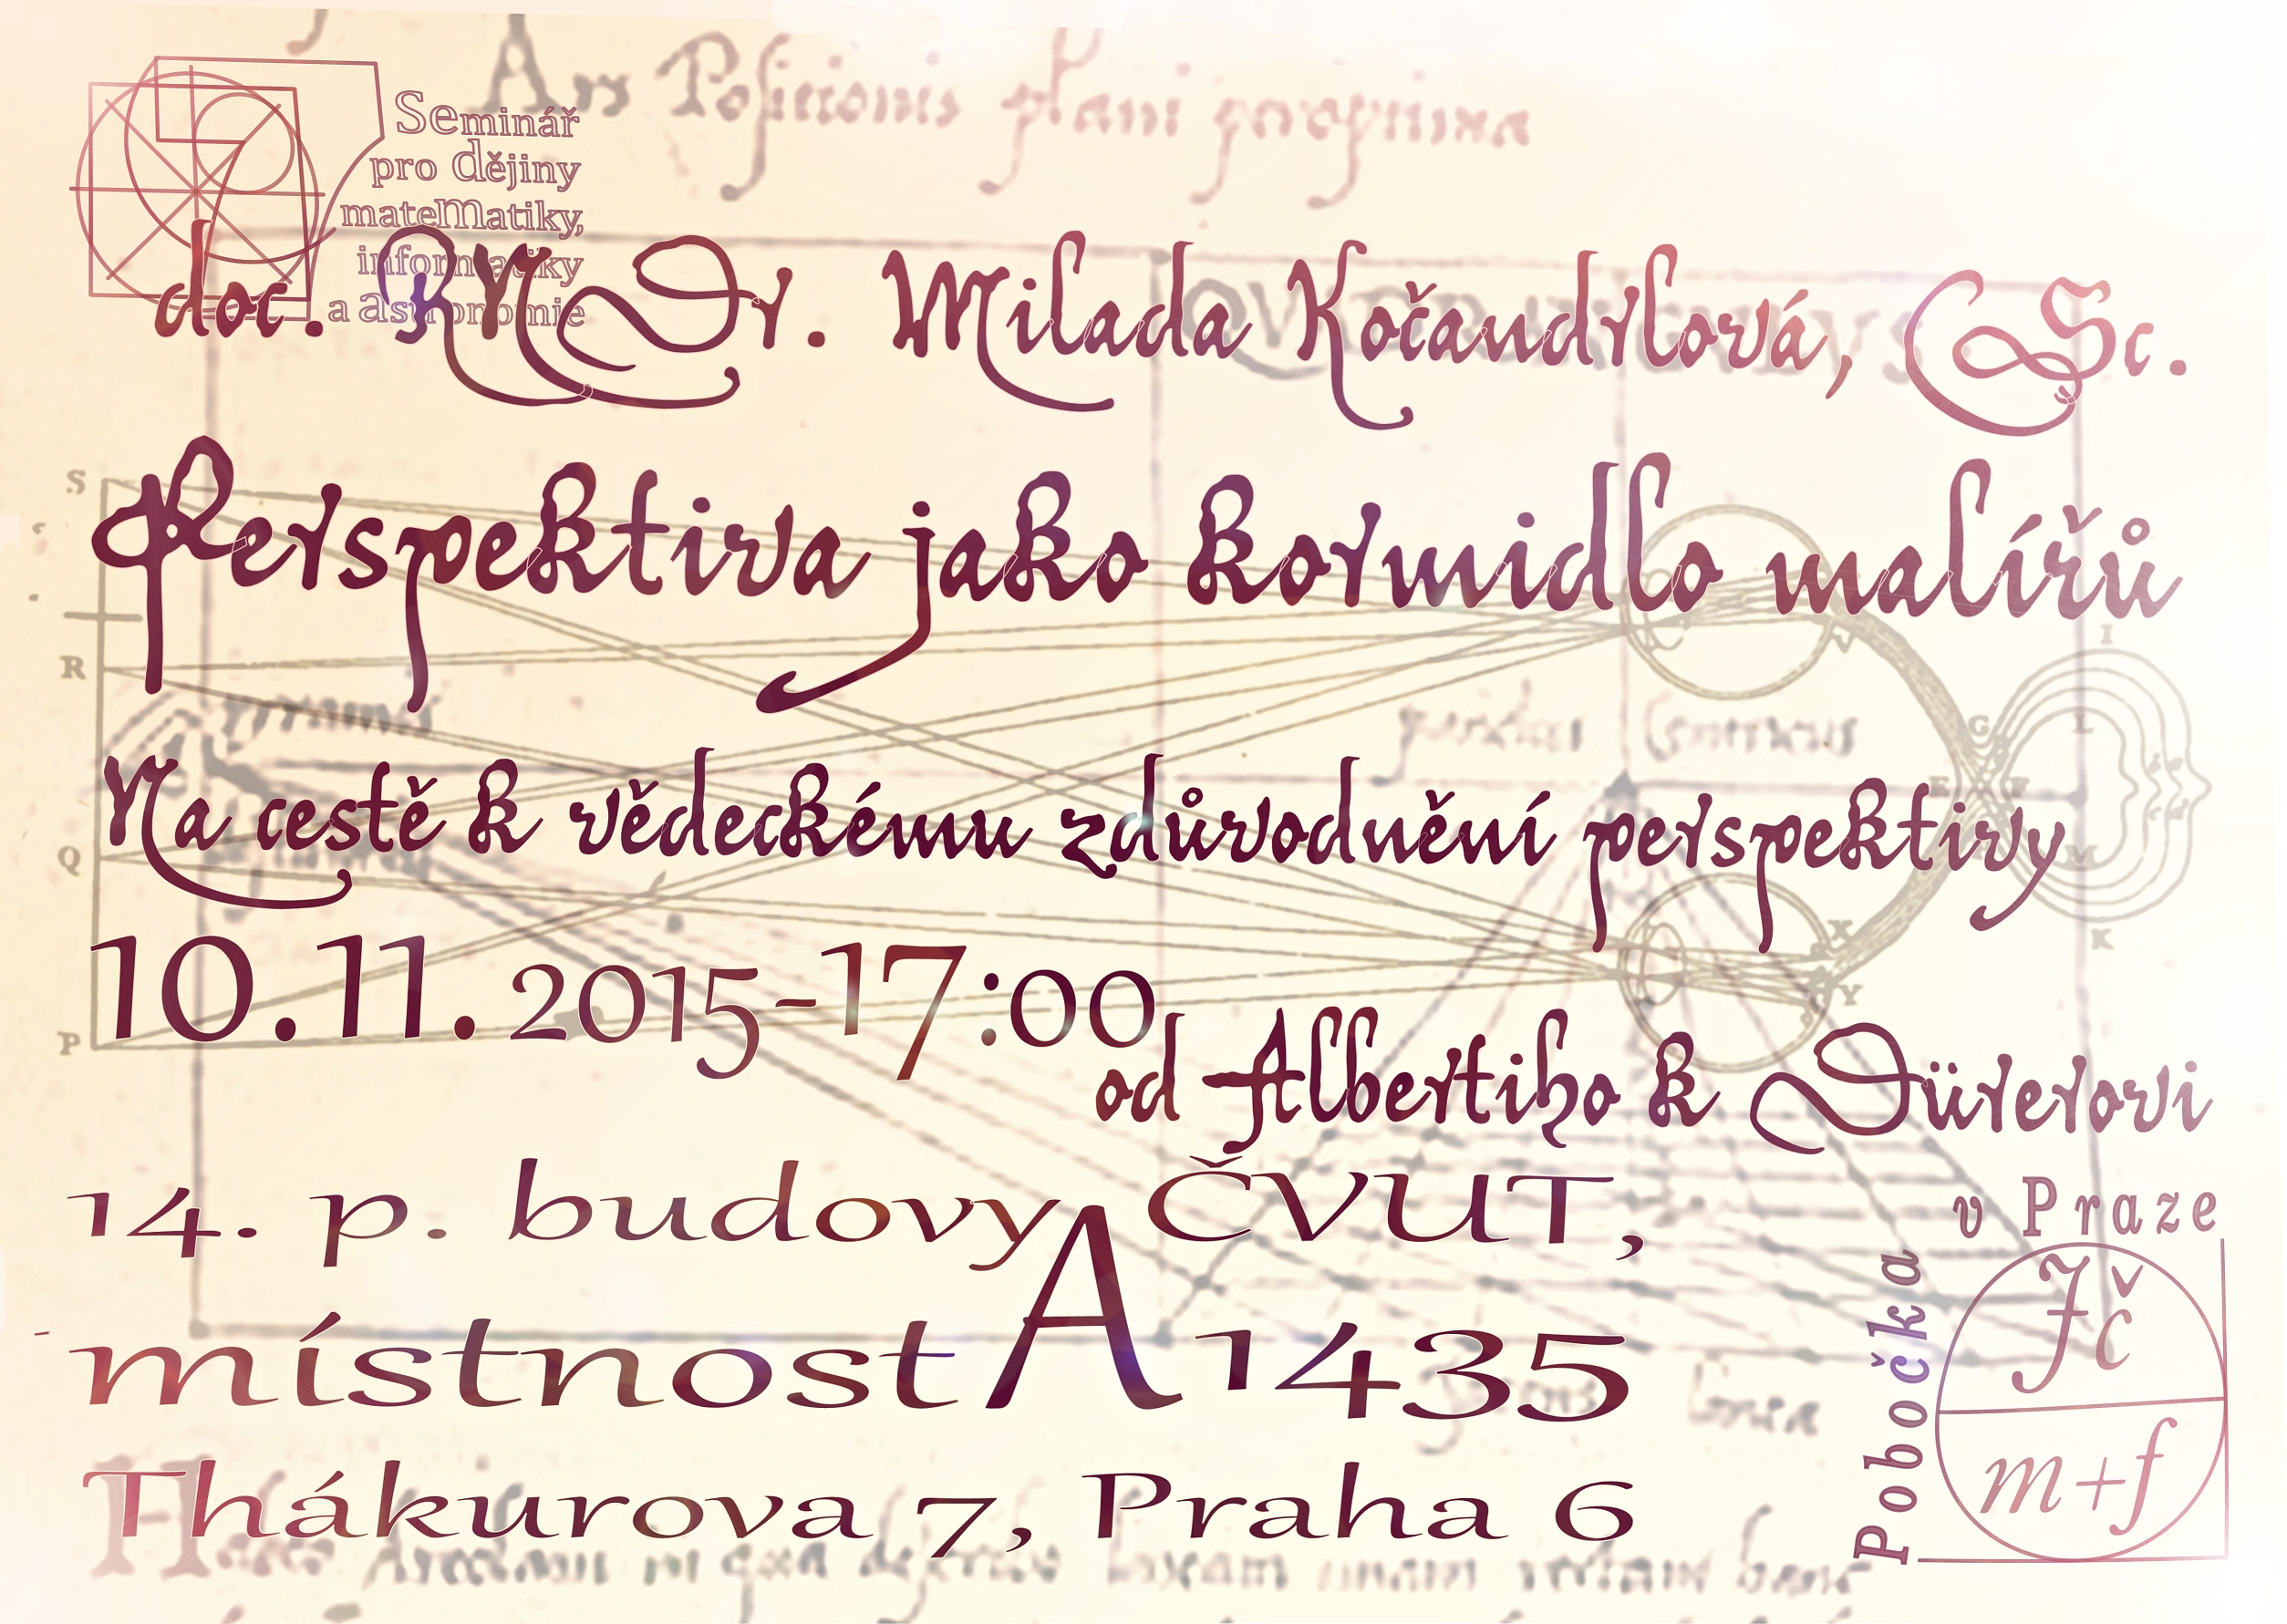 Seminář
pro dějiny
matematiky,
informatiky
a astronomie
doc. RNDr. Milada Kočandrlová, CSc.
Perspektiva jako kormidlo malířů
Na cestě k vědeckému zdůvodnění perspektivy
10.11.2015-17:00
od Albertiho k Dürerovi
14. p. budovy A ČVUT,
místnost A1435
Thákurova 7, Praha 6
Pobočka
v Praze
Jč
m+f
S
R
Q
P
I
G
L
E F
M
X
K
Y